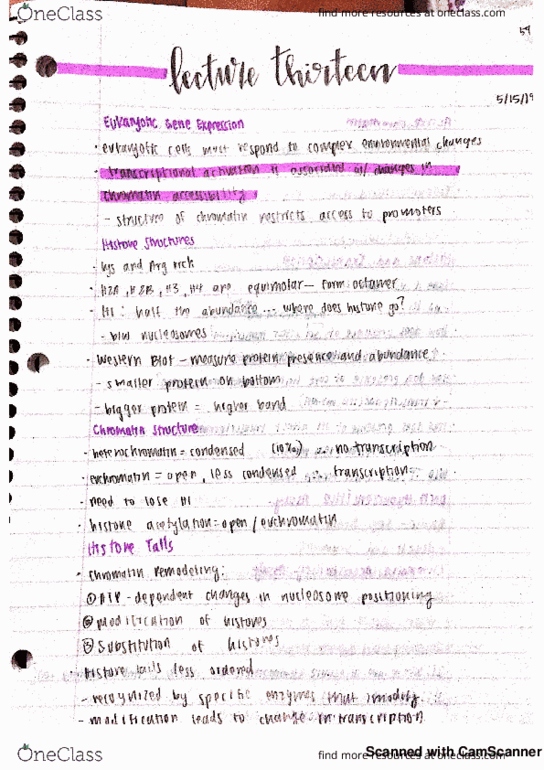 OneClass
find more resources at oneclass.com
59
lecture thirteen
5/15/19
Eukaryotic Gene Expression
· eukaryotic cells must respond to complex environmental changes
· transcriptional activation is associated w/ changes in
chromatin accessibility
- structure of chromatin restricts access to promoters
Histone Structures
· Lys and Arg rich
· H2A, H2B, H3, H4 are equimolar — form octamer
· H1: half the abundance ... where does histone go?
- b/w nucleosomes
· Western Blot - measure protein presence and abundance
- smaller protein on bottom
- bigger protein = higher band
Chromatin Structure
· heterochromatin = condensed (10%) ∴ no transcription
· euchromatin = open, less condensed ∴ transcription
· need to lose H1
· histone acetylation = open / euchromatin
Histone Tails
· chromatin remodeling:
① ATP-dependent changes in nucleosome positioning
② modification of histones
③ Substitution of histones
· histone tails less ordered
- recognized by specific enzymes that modify
- modification leads to change in transcription
Scanned with CamScanner
OneClass
find more resources at oneclass.com